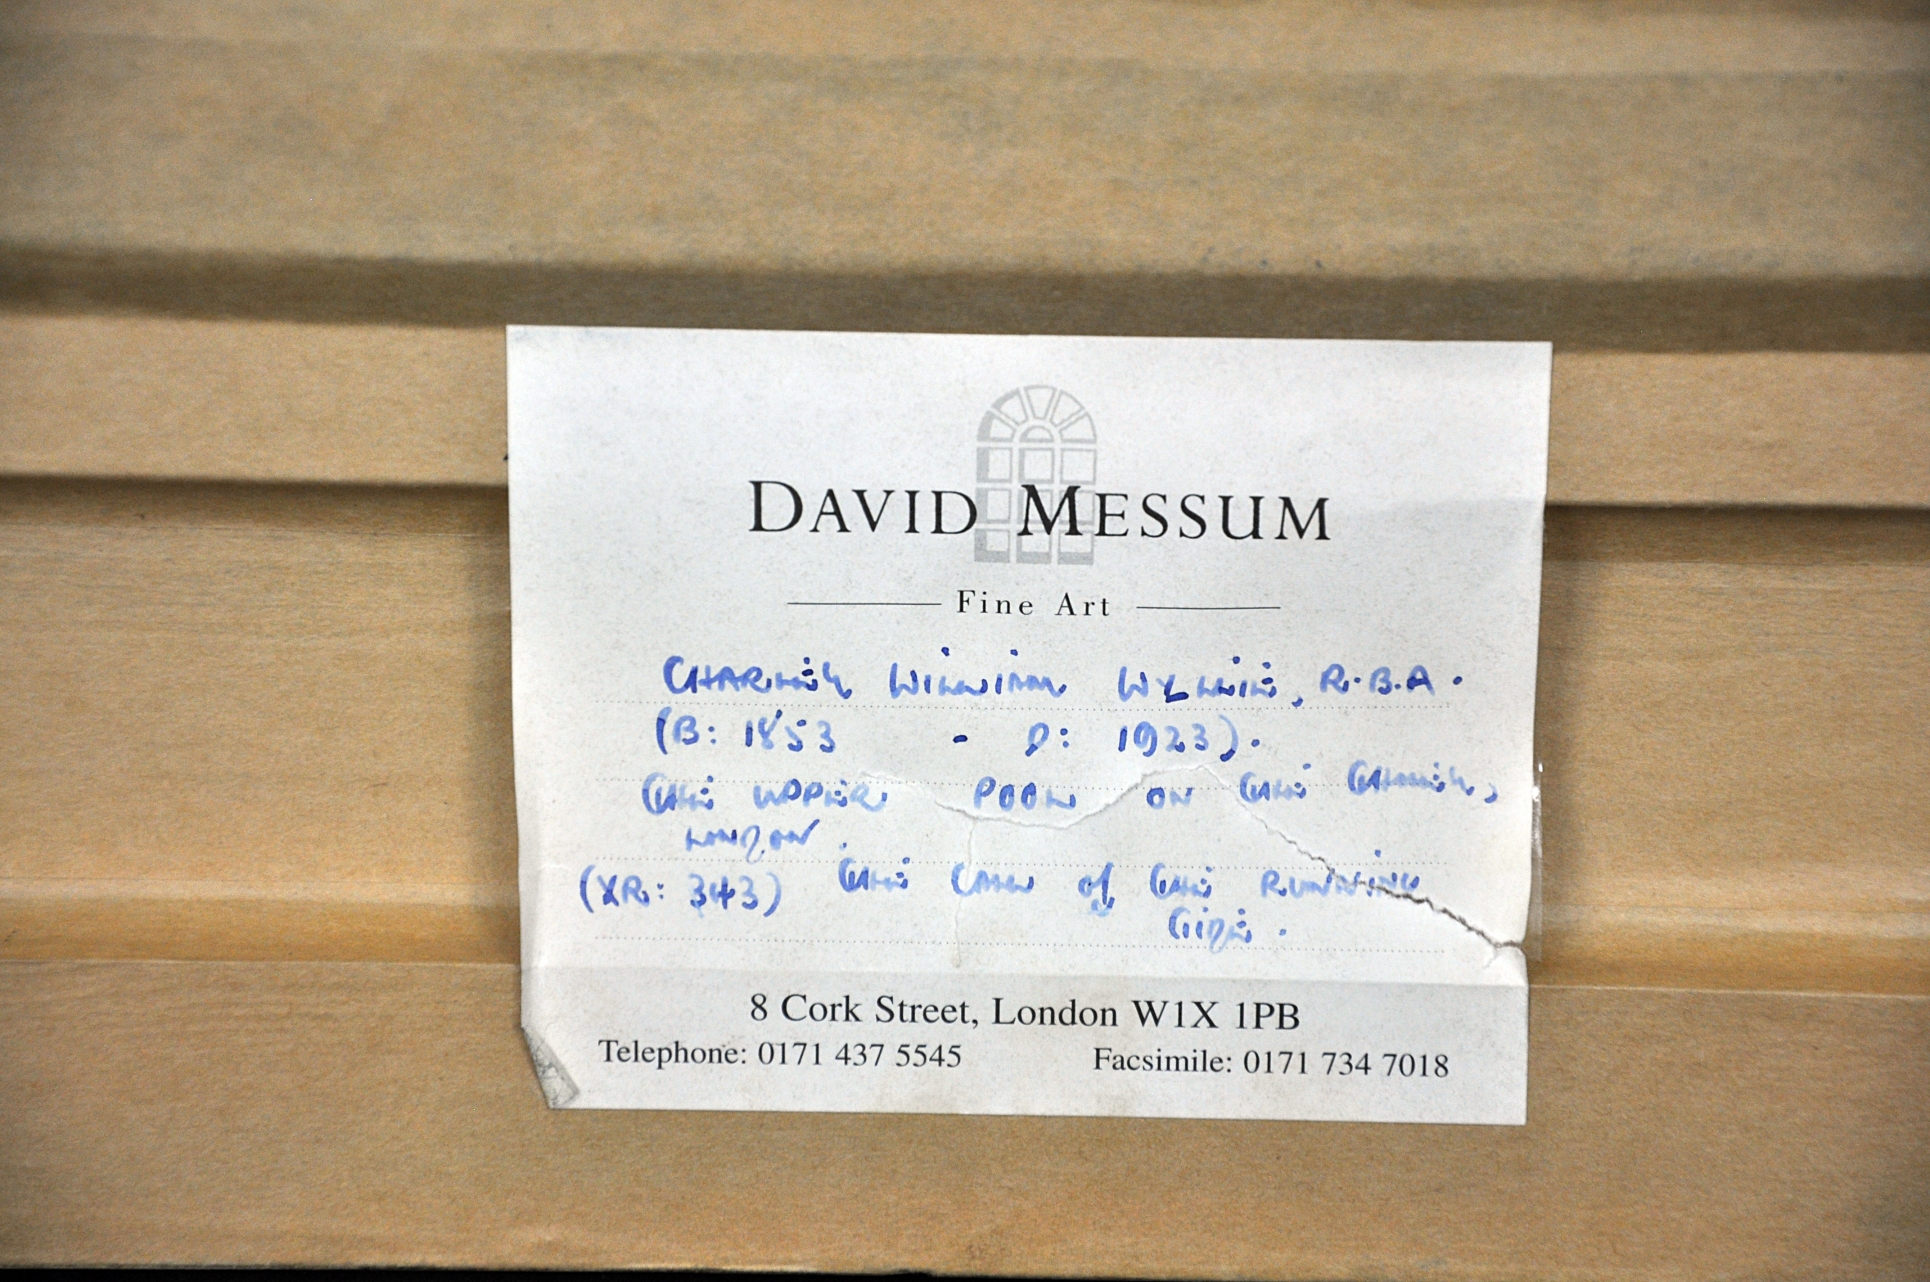 DAVID MESSUM
Fine Art
CHARLES WILLIAM WYLLIE, R.B.A.
(B: 1853 - D: 1923).
THE UPPER POOL ON THE THAMES,
LONDON.
(XR: 343) THE CALL of THE RUNNING
TIDE.
8 Cork Street, London W1X 1PB
Telephone: 0171 437 5545 Facsimile: 0171 734 7018